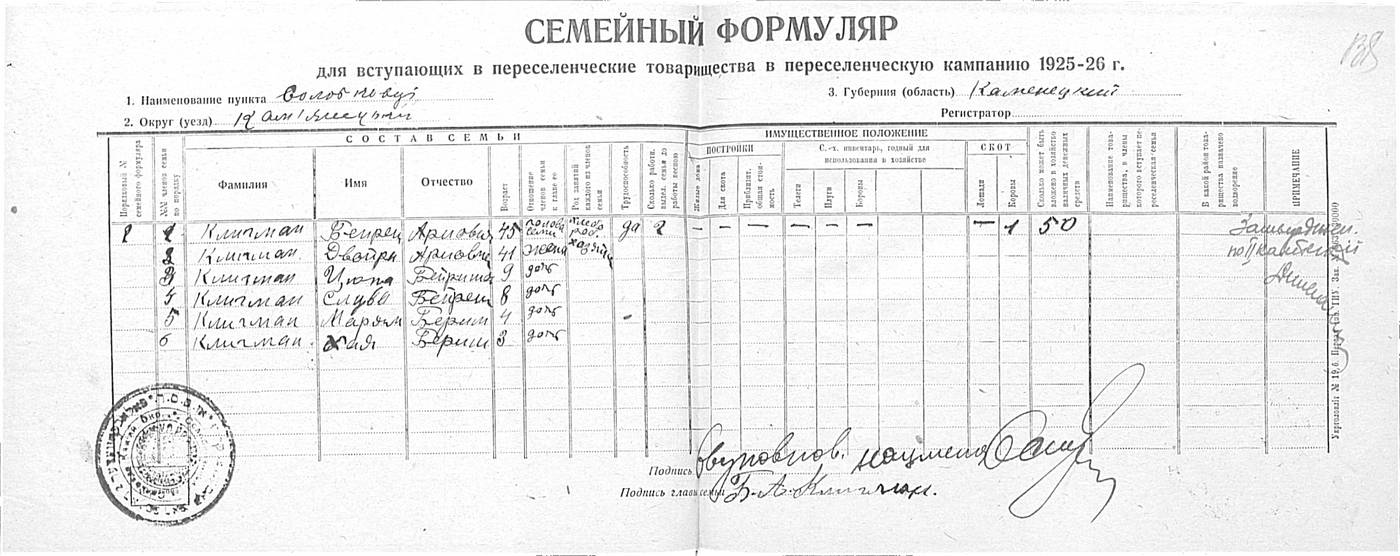 СЕМЕЙНЫЙ ФОРМУЛЯР
138
для вступающих в переселенческие товарищества в переселенческую кампанию 1925-26 г.
1. Наименование пункта Солобковцы
3. Губерния (область) Каменецкий
2. Округ (уезд) Кам'янецький
Регистратор
СОСТАВ СЕМЬИ
ИМУЩЕСТВЕННОЕ ПОЛОЖЕНИЕ
ПОСТРОЙКИ
С.-х. инвентарь, годный для использования в хозяйстве
СКОТ
Порядковый № семейного формуляра
№№ членов семьи по порядку
Фамилия
Имя
Отчество
Возраст
Отношение членов семьи к главе ее
Род занятий каждого из членов семьи
Трудоспособность
Сколько работн. выдел. семья до работы весною
Жилые дома
Для скота
Приблизит. общая стоимость
Телеги
Плуги
Бороны
Лошади
Коровы
Сколько может быть вложено в хозяйство наличных денежных средств
Наименование товарищества, в члены которого вступает переселенческая семья
В какой район товарищества назначено водворение
ПРИМЕЧАНИЕ
1 1 Клигман Берец Арнович 45 голова семьи хлебороб. да 2 – – – – – – – 1 50
2 Клигман Двойра Арновна 41 жена хозяйн
3 Клигман Ципа 9 доч
4 Клигман Слува 8 доч
5 Клигман Марьям Берин 4 доч -
6 Клигман Хая Берин 3 доч
Подпись
Подпись главы семьи Б. А. Клигман.